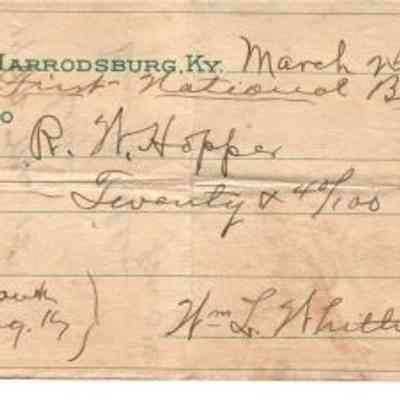 HARRODSBURG, KY. March
First National B
R. W. Hopper
Twenty & 40/100
Wm L. Whitt